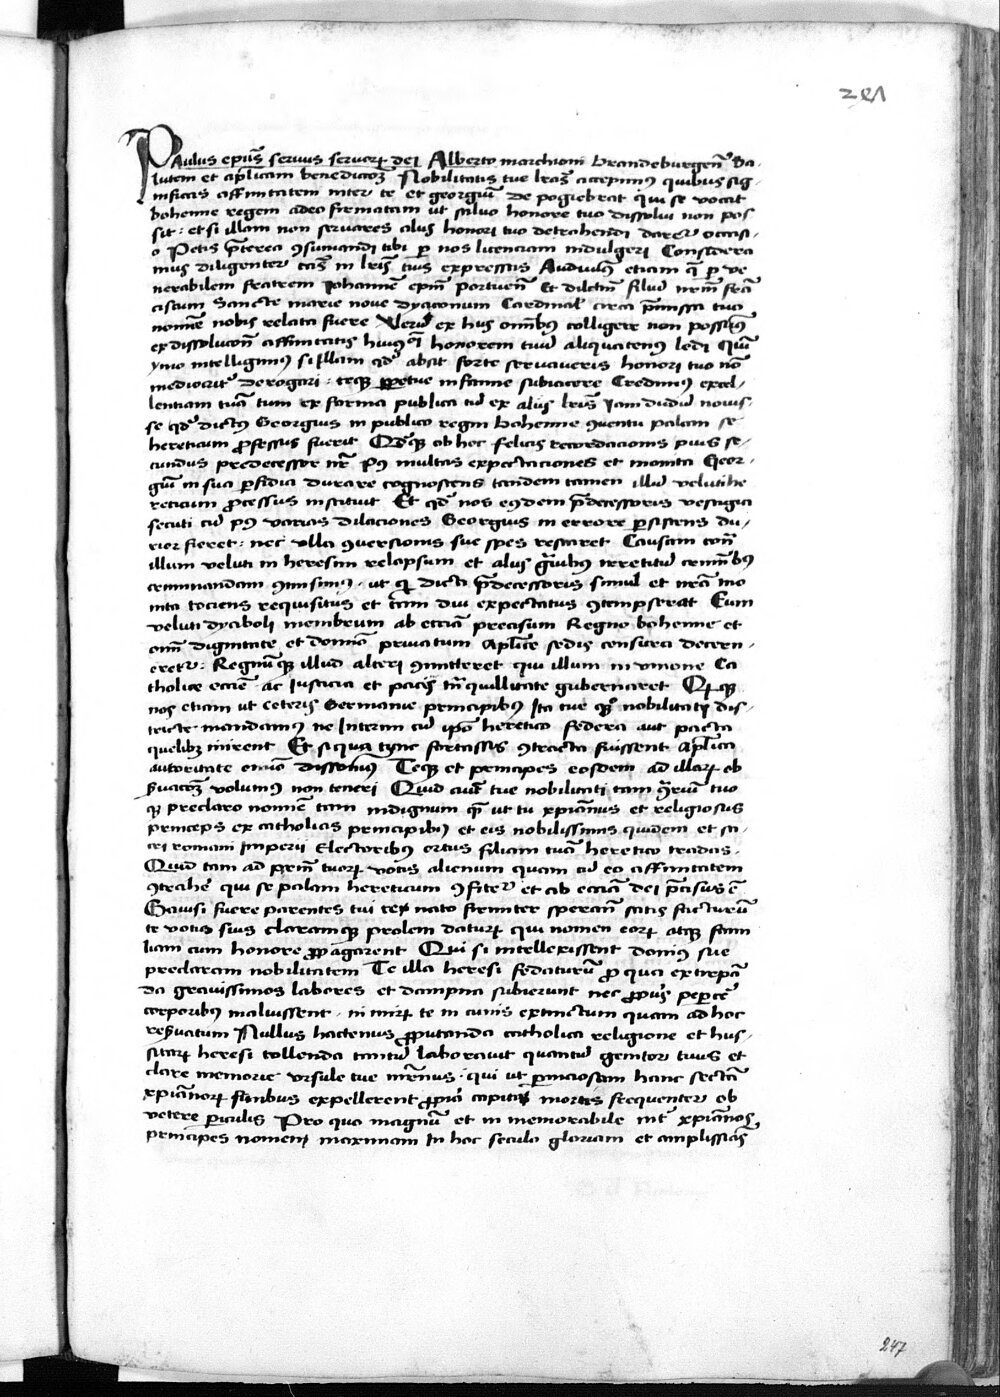 241
Paulus ep̄us servus servoꝝ dei Alberto marchioni brandeburgen̄ Sa-
lutem et apl̄icam benedictōēꝫ Nobilitatis tue lr̄as accepimꝰ quibus sig-
nificas affinitatem inter te et georgiū de pogiebrat qui se vocat
bohemie regem adeo firmatam ut salvo honore tuo dissolvi non pos
sit: et si illam non servares aliis honori tuo detrahendi daretr̄ occasi-
o Petis p̄terea ꝯsumandi tibi ꝑ nos licenciam indulgeri Considera
mus diligenter ea in lr̄is tuis expressis Audivimꝰ etiam q̄ ꝑ ve
nerabilem fratrem Johannem ep̄m portuen̄ Et dilectm̄ filiū nr̄m frā
ciscum Sancte marie nove dyaconum Cardinal̄ circa p̄missa tuo
nomīe nobis relata fuere Verū ex his om̄ibꝰ colligere non possumꝰ
ex dissolucōn̄ affinitatis huiꝰ honorem tuū aliquatenus ledi Quī
ymo intelligimꝰ si illam qd̄ absit forte servaveris honori tuo nō
mediocrit̄ derogari: teqꝫ ꝑpetue infamie subiacere Credimꝰ excel-
lentiam tuā tum ex forma publica tū ex aliis lr̄is Jamdudū novis-
se qd̄ dictꝰ Georgius in publico regni bohemie ꝯventu palam se
hereticum ꝓfessus fuerit Qd̄qꝫ ob hoc felicis recordacionis pius se-
cundus predecessor nr̄ pꝰ multas expectaciones et monita Geor-
giū in sua ꝑfidia durare cognoscens tandem tamen illū veluti he
reticum ꝓcessus instituit Et qd̄ nos eiꝰdem p̄decessoris vestigia
secuti cū pꝰ varias dilaciones Georgius in errore ꝑsistens du-
rior fieret: nec ulla ꝯversionis sue spes restaret Causam contͣ
illum veluti in heresim relapsum et aliis gͣvibus irretitū criminibꝰ
criminandam ꝯmisimꝰ. ut qͥ dicti p̄decessoris simul et nr̄a mo
nita tociens requisitus et tam diu expectatus ꝯtempserat Eum
veluti dyaboli membrum ab ecc̄ia precisum Regno bohemie et
om̄i dignitate et dominio privatum apl̄ice sedis censura decern-
eretr̄: Regnūqꝫ illud alteri ꝯmitteret qui illum in unione Ca
tholice ecc̄ie ac Justicia et pacis trāquillitate gubernaret
nos etiam ut ceteris Germanie principibꝰ Ita tue qꝫ nobilitati dis-
tricte mandamꝰ ne Interim cū ip̄o heretico federa aut pacta
quelibꝫ inirent Et si qua tūc fortassis ꝯtracta fuissent apl̄ica
autoritate omīo dissolvimꝰ Teqꝫ et principes eosdem ad illaꝝ ob
ẜvacōēꝫ volumꝰ non teneri Quid autē tue nobilitati tam gͣviū tuo
qꝫ preclaro nomīe tam indignum qͣ ut tu xp̄ianus et religiosus
princeps ex catholicis principibꝰ et eis nobilissimis quidem et sa-
cri romani Imperii Electoribꝰ ortus filiam tuā heretico tradas.
Quid tam ad prīm tuoꝝ votis alienum quam cū eo affinitatem
ꝯtrahe᷑ qui se palam hereticum ꝯfitet᷑ et ab ecc̄ia dei p̄cisus ē
Gavisi fuere parentes tui te nato firmiter sperant̄ satis facturū
te votis suis claramqꝫ prolem datuꝝ qui nomen eoꝝ atqꝫ fami
liam cum honore ꝓpagarent Qui si intellexissent domus sue
preclaram nobilitatem Te illa heresi fedaturū ꝓ qua extirpā
da gravissimos labores et dampna subierunt nec ꝓpriis peꝑcēt
corporibus maluissent. nimiꝝ te in cunis extinctum quam ad hoc
reẜvatum Nullus hactenus ꝓ putanda catholica religione et hus-
sitaꝝ heresi tollenda tantū laboravit quantū genitor tuus et
clare memorie ursule tue mr̄nus. qui ut ꝑniciosam hanc sectā
xp̄ianoꝝ finibus expellerent ꝓprii capitis mortis frequenter ob
vetere ꝑiculis Pro quo magnū et in memorabile int̄ xp̄ianos
principes nomen maximam In hoc seculo gloriam et amplissimā
247